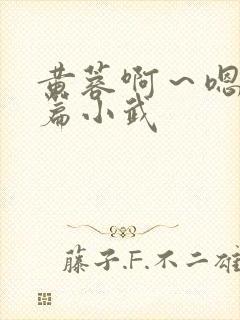 黄蓉啊～嗯
篇小武
藤子.F.不二雄